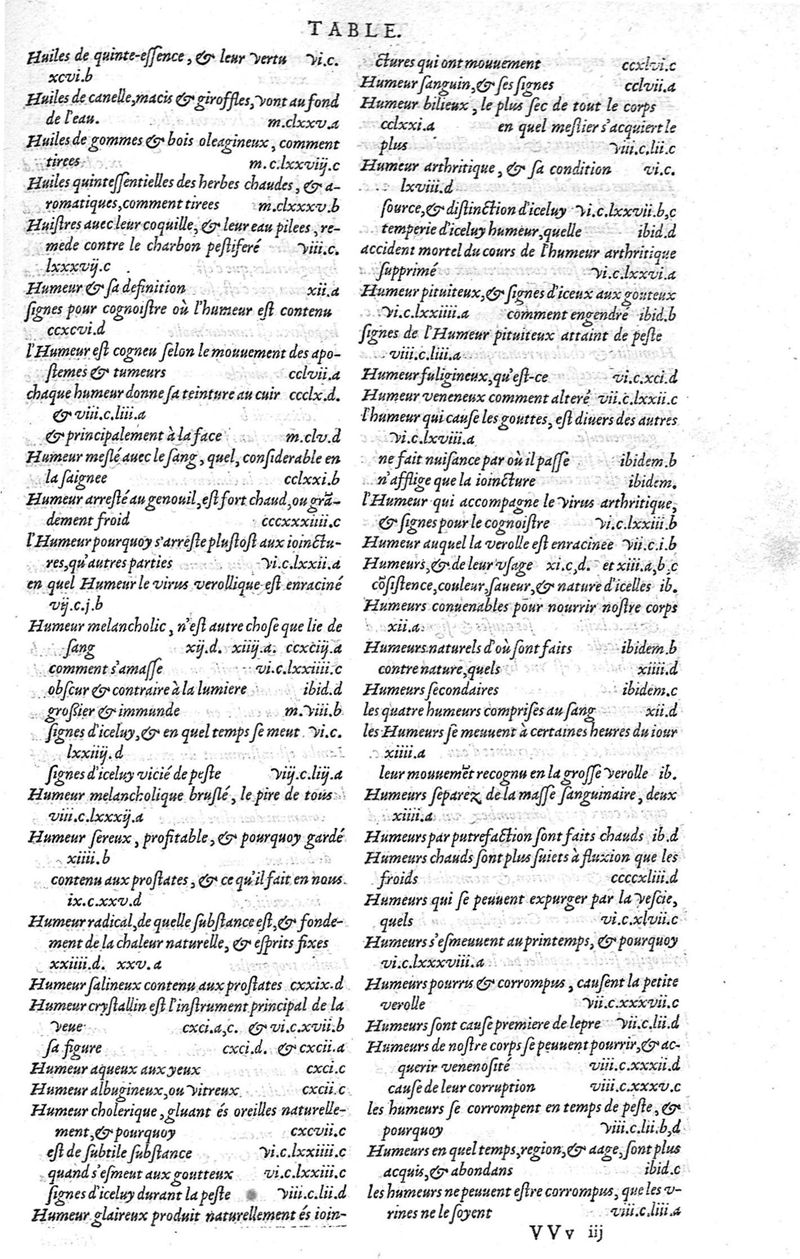 TABLE.
Huiles de quinte-essence, & leur vertu vi.c.
xcvi.b
Huiles de canelle, macis & giroffles, vont au fond
de l'eau. m.clxxv.a
Huiles de gommes & bois oleagineux, comment
tirees m.c.lxxviij.c
Huiles quintessentielles des herbes chaudes, & a-
romatiques, comment tirees m.clxxxv.b
Huistres avec leur coquille, & leur eau pilees, re-
mede contre le charbon pestiferé viii.c.
lxxxvij.c
Humeur & sa definition xii.a
signes pour cognoistre où l'humeur est contenu
ccxcvi.d
l'Humeur est cogneu selon le mouuement des apo-
stemes & tumeurs cclvii.a
chaque humeur donne sa teinture au cuir ccclx.d.
& viii.c.liii.a
& principalement à la face m.clv.d
Humeur meslé auec le sang, quel, considerable en
la saignee cclxxi.b
Humeur arresté au genouil, est fort chaud, ou grã-
dement froid cccxxxiiii.c
l'Humeur pourquoy s'arreste plustost aux ioinctu-
res, qu'autres parties vi.c.lxxii.a
en quel Humeur le virus verollique est enraciné
vij.c.j.b
Humeur melancholic, n'est autre chose que lie de
sang xij.d. xiij.a. ccxciij.a
comment s'amasse vi.c.lxxiiii.c
obscur & contraire à la lumiere ibid.d
grossier & immunde m.viii.b
signes d'iceluy, & en quel temps se meut vi.c.
lxxiij.d
signes d'iceluy vicié de peste viij.c.liij.a
Humeur melancholique bruslé, le pire de tous
viii.c.lxxxij.a
Humeur sereux, profitable, & pourquoy gardé
xiiii.b
contenu aux prostates, & ce qu'il fait en nous
ix.c.xxv.d
Humeur radical, de quelle substance est, & fonde-
ment de la chaleur naturelle, & esprits fixes
xxiiii.d. xxv.a
Humeur salineux contenu aux prostates cxxix.d
Humeur crystallin est l'instrument principal de la
veue cxci.a,c. & vi.c.xvii.b
sa figure cxci.d. & cxcii.a
Humeur aqueux aux yeux cxci.c
Humeur albugineux, ou vitreux cxcii.c
Humeur cholerique, gluant és oreilles naturelle-
ment, & pourquoy cxcvii.c
est de subtile substance vi.c.lxxiiii.c
quand s'esmeut aux goutteux vi.c.lxxiii.c
signes d'iceluy durant la peste viii.c.lii.d
Humeur glaireux produit naturellement és ioin-
ctures qui ont mouuement ccxlvi.c
Humeur sanguin, & ses signes cclvii.a
Humeur bilieux, le plus sec de tout le corps
cclxxi.a en quel mestier s'acquiert le
plus viii.c.lii.c
Humeur arthritique, & sa condition vi.c.
lxviii.d
source, & distinction d'iceluy vi.c.lxxvii.b,c
temperie d'iceluy humeur, quelle ibid.d
accident mortel du cours de l'humeur arthritique
supprimé vi.c.lxxvi.a
Humeur pituiteux, & signes d'iceux aux gouteux
vi.c.lxxiiii.a comment engendré ibid.b
signes de l'Humeur pituiteux attaint de peste
viii.c.liii.a
Humeur fuligineux, qu'est-ce vi.c.xci.d
Humeur veneneux comment alteré vii.c.lxxii.c
l'humeur qui cause les gouttes, est divers des autres
vi.c.lxviii.a
ne fait nuisance par où il passe ibidem.b
n'afflige que la ioincture ibidem.
l'Humeur qui accompagne le virus arthritique,
& signes pour le cognoistre vi.c.lxxiii.b
Humeur auquel la verolle est enracinee vii.c.i.b
Humeurs, & de leur vsage xi.c,d. et xiii.a,b,c
cõsistence, couleur, saueur, & nature d'icelles ib.
Humeurs conuenables pour nourrir nostre corps
xii.a.
Humeurs naturels d'où sont faits ibidem.b
contre nature, quels xiiii.d
Humeurs secondaires ibidem.c
les quatre humeurs comprises au sang xii.d
les Humeurs se meuuent à certaines heures du iour
xiiii.a
leur mouuemẽt recognu en la grosse verolle ib.
Humeurs separez de la masse sanguinaire, deux
xiiii.a
Humeurs par putrefaction sont faits chauds ib.d
Humeurs chauds sont plus suiets à fluxion que les
froids ccccxliii.d
Humeurs qui se peuuent expurger par la vescie,
quels vi.c.xlvii.c
Humeurs s'esmeuuent au printemps, & pourquoy
vi.c.lxxxviii.a
Humeurs pourris & corrompus, causent la petite
verolle vii.c.xxxvii.c
Humeurs sont cause premiere de lepre vii.c.lii.d
Humeurs de nostre corps se peuuent pourrir, & ac-
querir venenosité viii.c.xxxii.d
cause de leur corruption viii.c.xxxv.c
les humeurs se corrompent en temps de peste, &
pourquoy viii.c.lii.b,d
Humeurs en quel temps, region, & aage, sont plus
acquis, & abondans ibid.c
les humeurs ne peuuent estre corrompus, que les v-
rines ne le soyent viii.c.liii.a
VVv iij